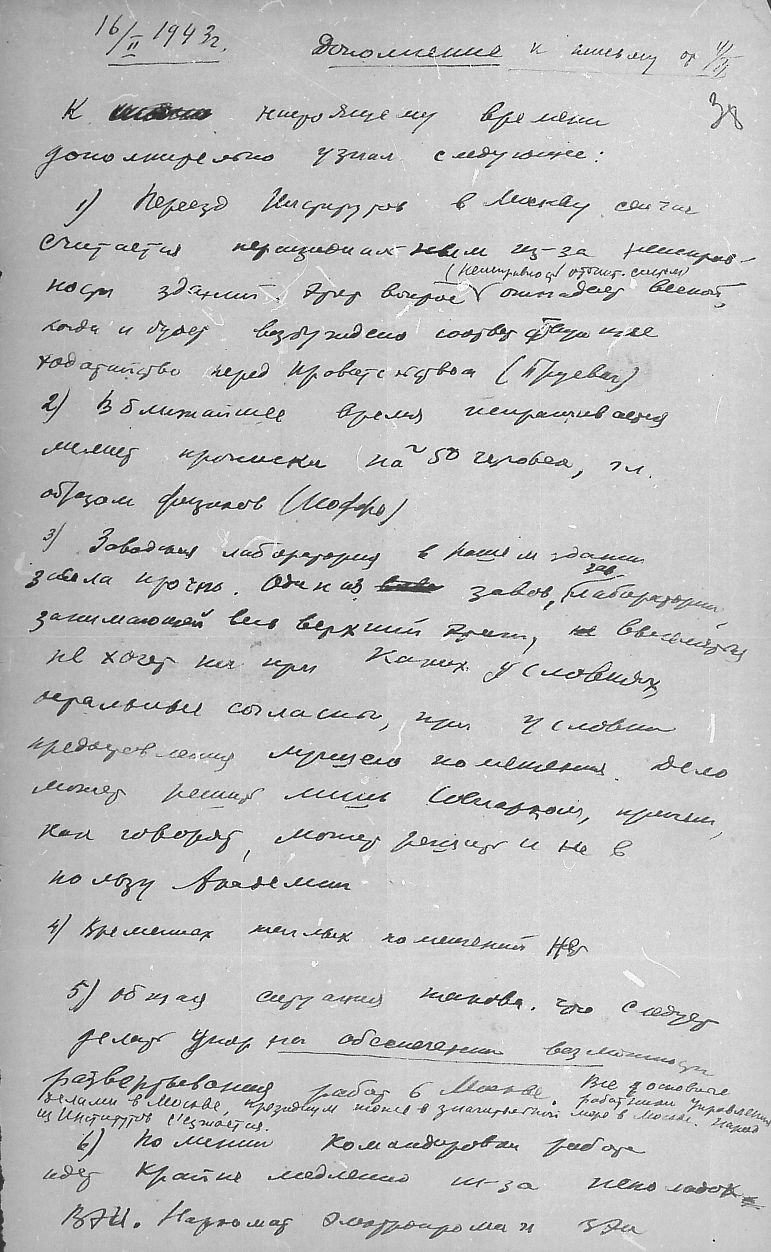 16/II 1943г.
Дополнение к письму от 4/II
38
К настоящему времени
дополнительно узнал следующее:
1) Переезд Институтов в Москву сейчас
считается нерациональным из-за неисправ-
ности зданий. Этот вопрос (неисправность отопит. систем) отпадает весной,
когда и будет возбуждено соответствующее
ходатайство перед Правительством (Бруевич)
2) В ближайшее время испрашивается
лимит прописки на ~ 50 человек, гл.
образом физиков (Иоффе)
3) Заводская лаборатория в нашем здании
засела прочно. Одна из завод. лабораторий,
зав.
занимающей весь верхний этаж, выселяться
не хочет ни при каких условиях,
остальные согласны, при условии
предоставления лучшего помещения. Дело
может решить лишь Совнарком, причем,
как говорят, может решить и не в
пользу Академии
4) Временных теплых помещений нет
5) Общая ситуация такова, что следует
делать упор на обеспечении возможности
развертывания работ в Москве. Все основные работники управления
делами в Москве, президиум тоже в значительной мере в Москве. Народ
из Институтов съезжается.
6) По линии командировки работа
идет крайне медленно из-за неполадок
ВЭИ. Наркомат Электропрома и